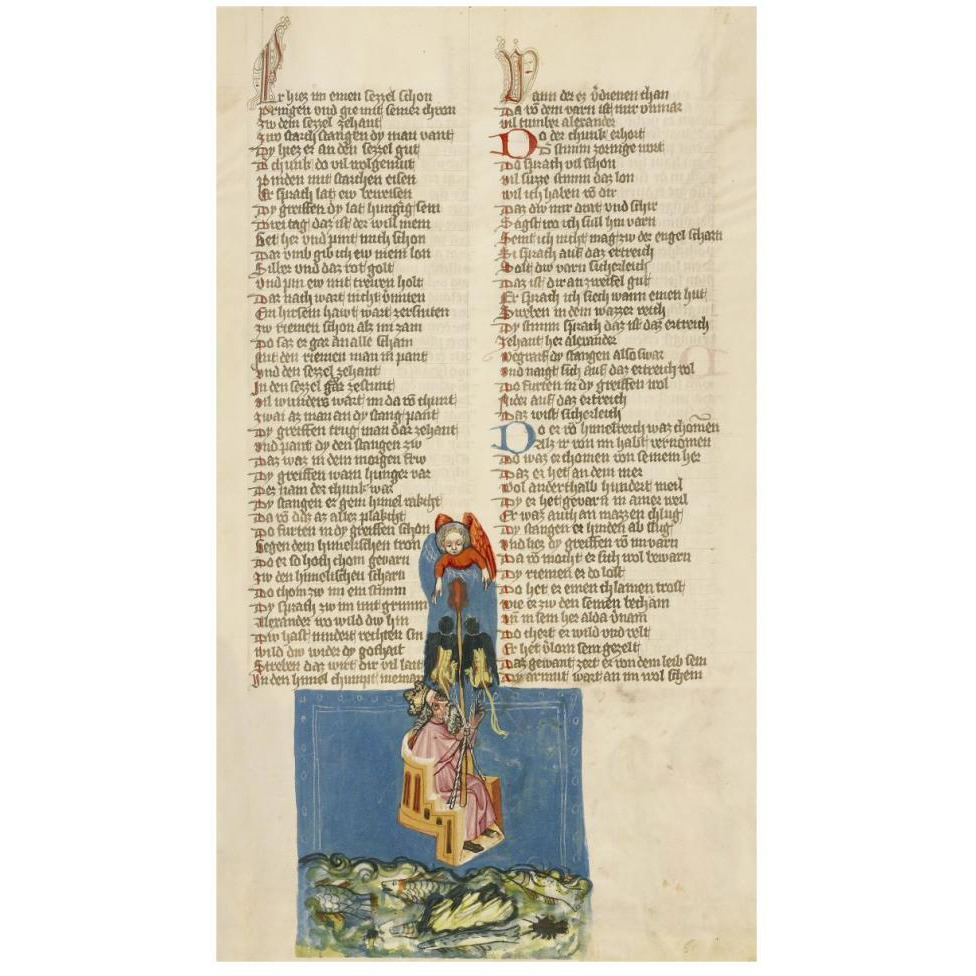 Er hiez im einen sezzel schon
Pringen vnd gie mit seiner chron
Zw dem sezzel zehant
Zwo starch stangen dy man vant
Dy hiez er an den sezzel gut
D chunk do vil wolgemut
Pinden mit starchen eisen
Er sprach lat ew beweisen
Dy greiffen dy lat hungrig sein
Drei tag daz ist der will mein
Get her vnd pint mich schon
Dar vmb gib ich ew mein lon
Silber vnd daz rot golt
Vnd pin ew mit treuen holt
Dar nach wart nicht vermiten
Ein hirsein hawt wart zersniten
Zw riemen schon als im zam
Do saz er gar an alle scham
Mit den riemen man in pant
Vnd den sezzel zehant
In den sezzel gar zestunt
Vil wunders wart im da vō chunt
Zwai az man an dy stang pant
Dy greiffen trug man dar zehant
Vnd pant dy den stangen zw
Daz waz in dem morgen frw
Dy greiffen wam hunger var
Der nam der chunk war
Dy stangen er gein himel rakcht
Da vō diz az allez plakcht
Do furten in dy greiffen schon
Gegen dem himelschen tron
Do er so hoch chom gevarn
Zw den himelischen scharn
Do chom zw im ein stimm
Dy sprach zw im mit grimm
Alexander wo wild dw hin
Dw hast nindert rechten sin
Wild dw wider dy gothait
Streben daz wirt dir vil lait
In den himel chumpt nieman
Wann der ez v̄dienen chan
Da vō dem varn ist mir vnmar
Vil tumber alexander
Do der chunk erhort
Dē stimm zornige wort
Do sprach vil schon
Vil suzze stimm daz lon
Wil ich haben vō dir
Daz dw mir drat vnd schir
Sagst wo ich sull hin varn
Seint ich nicht mag zw der engel scharn
Si sprach auf daz ertreich
Solt dw varn sicherleich
Daz ist dir an zweifel gut
Er sprach ich siech wann einen hut
Sweben in dem wazzer reich
Dy stimm sprach daz ist daz ertreich
Zehant her alexander
Begraif dy stangen also swar
Vnd naigt sich auf daz ertreich vol
Do furten in dy greiffen wol
Nider auf daz ertreich
Daz wist sicherleich
Do er vō himelreich waz chomen
Als ir von im habt vernomen
Do waz er chomen von seinem her
Daz er het an dem mer
Wol anderthalb hundert meil
Dy er het gevarn in ainer weil
Er waz auch an mazzen chlug
Dy stangen er hinden ab slug
Vnd hiez dy greiffen vō im varn
Da vō mocht er sich wol bewarn
Dy riemen er do lost
Do het er einen chlainen trost
Wie er zw den seinen becham
Vn̄ in sein her alda v̄nam
Do chert er wild vnd velt
Er het v̄lorn sein gezelt
Daz gewant zert er von dem leib sein
Dy armut wart an im wol schein